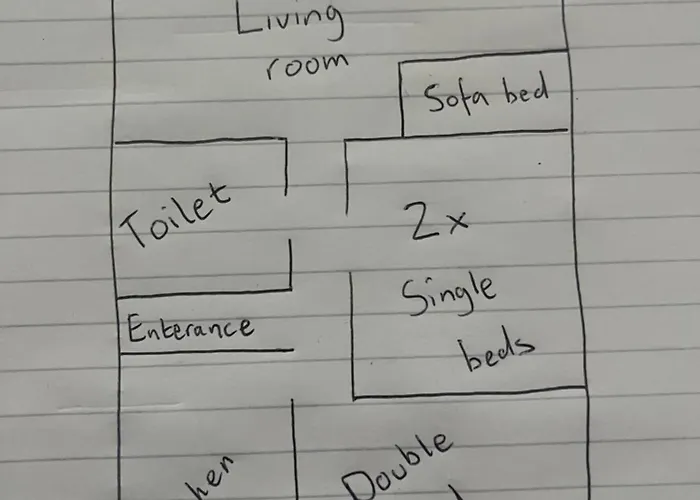 Living
room
Sofa bed
Toilet
2x
Single
beds
Enterance
hen
Double